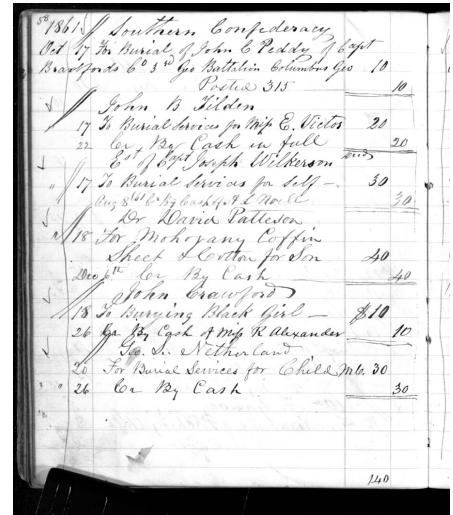 58
1861 Southern Confederacy
Oct 17 For Burial of John C Peddy of Capt
Bradfords Co 3rd Geo Battalion Columbus Geo 10
Posted 315 10
John B Tilden
17 To Burial Services for Miss E. Victor 20
22 Cr By Cash in full 20
Est of Capt Joseph Wilkerson
17 To Burial Services for Self — 30
Aug 8 Cr By Cash of A L 30
Dr David Patteson
18 For Mohogany Coffin
Sheet & Cotton for Son 40
Dec 6th Cr By Cash 40
John Crawford
18 To Burying Black Girl — $10
26 Cr By Cash of Miss R Alexander 10
Geo. S. Netherland
20 For Burial Services for Child No. 30
26 Cr By Cash 30
140